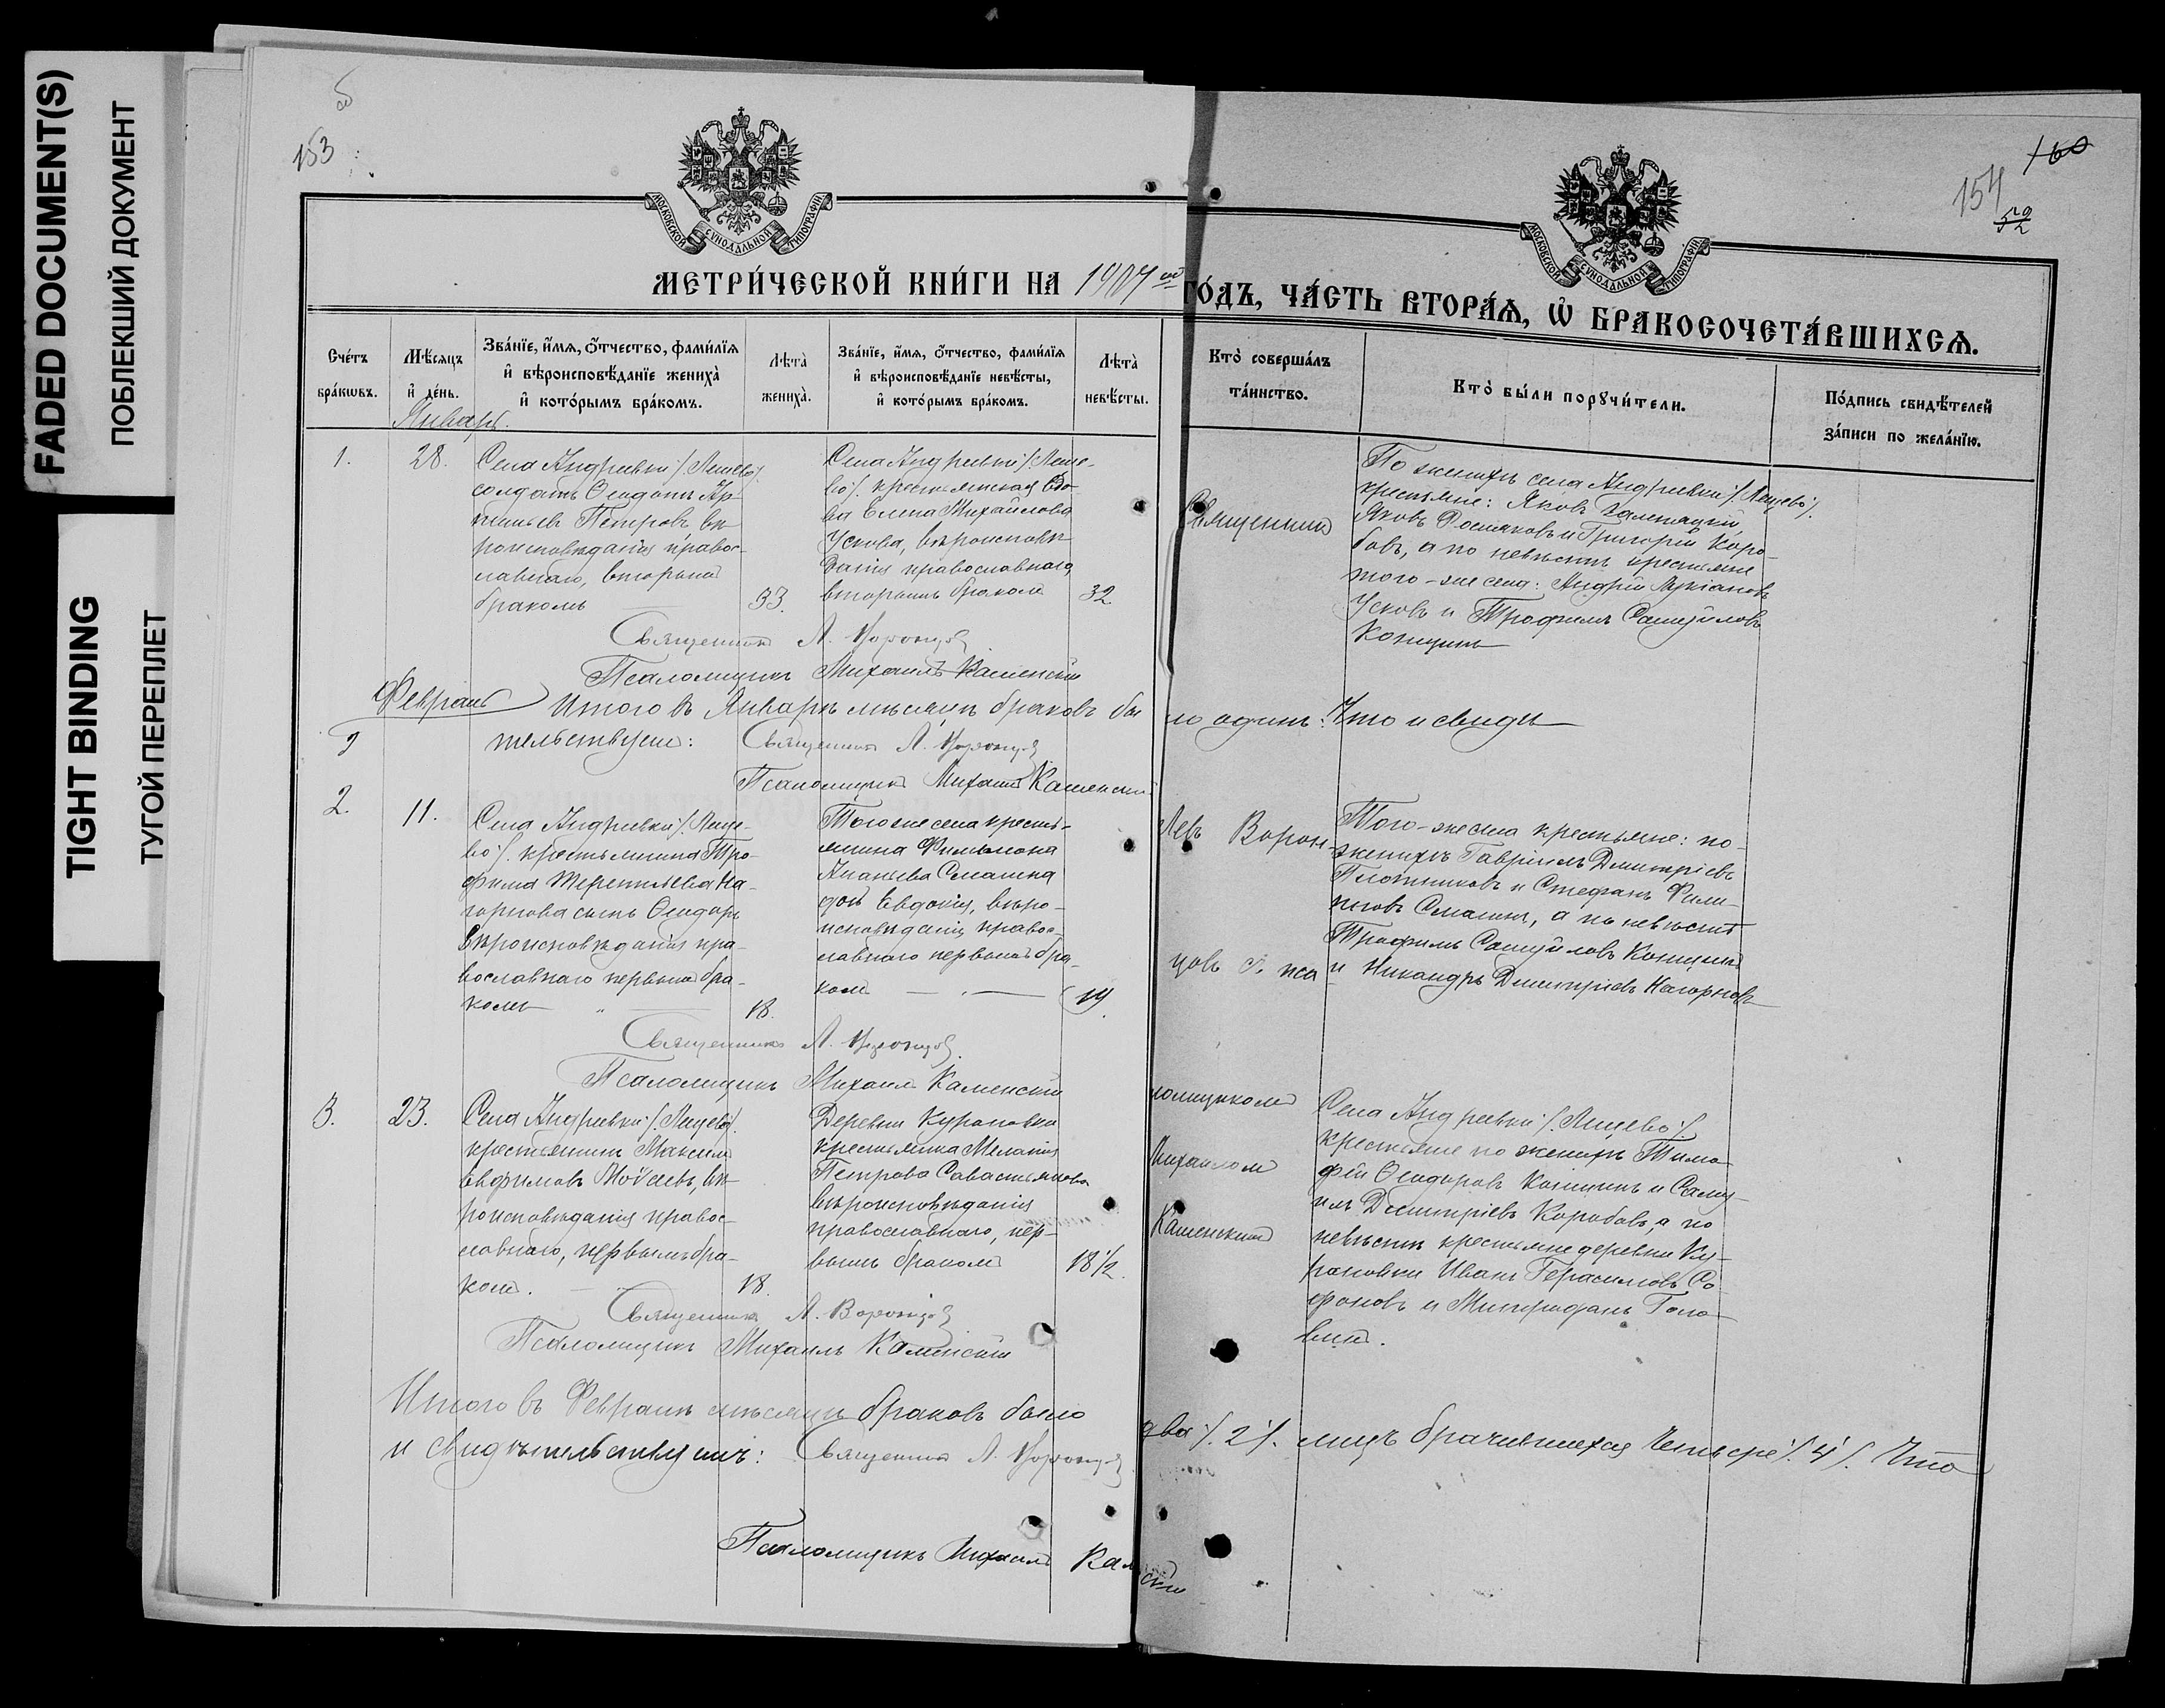 FADED DOCUMENT(S)
ПОБЛЕКШИЙ ДОКУМЕНТ
TIGHT BINDING
ТУГОЙ ПЕРЕПЛЕТ
153
160
154
МОСКОВСКОЙ СѴНОДАЛЬНОЙ ТИПОГРАФІИ
МОСКОВСКОЙ СѴНОДАЛЬНОЙ ТИПОГРАФІИ
МЕТРИ́ЧЕСКОЙ КНИ́ГИ НА 1907 ой ГО́ДЪ, ЧА́СТЬ ВТОРА́Ѧ, Ѽ БРАКОСОЧЕТА́ВШИХСѦ.
Сче́тъ
бра́кѡвъ.
Мѣ́сѧцъ
и҆ де́нь.
Зва́нїе, и҆́мѧ, ѻ҆́тчество, фами́лїѧ
и҆ вѣроисповѣ́данїе жениха̀
и҆ кото́рымъ бра́комъ.
Лѣ́та̀
жениха̀.
Зва́нїе, и҆́мѧ, ѻ҆́тчество, фами́лїѧ
и҆ вѣроисповѣ́данїе невѣ́сты,
и҆ кото́рымъ бра́комъ.
Лѣ́та̀
невѣ́сты.
Кто̀ соверша́лъ
та́инство.
Кто̀ бы́ли порꙋчи́тели.
По́дпись свидѣ́телей
за́писи по жела́нїю.
Январь.
1.
28.
Села Андреевки /Лещево/
солдатъ
Петровъ вѣ-
роисповѣданія правос-
лавнаго, вторымъ
бракомъ
33.
Села Андреевки /Леще-
во/. крестьянская вдо-
ва Елена Михайлова
Ускова, вѣроисповѣ-
данія православнаго,
вторымъ бракомъ
32
Священникъ
По женихѣ села Андреевки /Лещево/.
крестьяне: Яковъ
Яковъ и Григорій Коро-
бовъ, а по невѣстѣ крестьяне
того-же села: Андрей Лукіановъ
Усковъ и Трофимъ Самуйловъ
Конищинъ
Священникъ Л. Воронцовъ
Псаломщикъ Михаилъ Каменскій
Февраль
Итого въ Январѣ мѣсяцѣ браковъ бы ло одинъ: Что и свидѣ
тельствуемъ: Священникъ Л. Воронцовъ
Псаломщикъ Михаилъ Каменскій
2.
11.
Села Андреевки /Леще-
во/. крестьянина Тро-
фима Терентьева На-
горнова сынъ
вѣроисповѣданія пра-
вославнаго первымъ бра-
комъ
18.
Того же села кресть-
янина Филимона
Ананьева Смагина
дочь Евдокія, вѣро-
исповѣданія правос-
лавнаго первымъ бра-
комъ
19.
Левъ Ворон-
цовъ съ пса
Того-же села крестьяне: по
женихѣ Гавріилъ Дмитріевъ
Плотниковъ и Стефанъ Фили-
повъ Смагинъ, а по невѣстѣ
Трофимъ Самуйловъ Конищинъ
и Никандръ Дмитріевъ Нагорновъ
Священникъ Л. Воронцовъ
Псаломщикъ Михаилъ Каменскій
3.
23.
Села Андреевки /Лещево/.
крестьянинъ Максимъ
Евфимовъ вѣ-
роисповѣданія правос-
лавнаго, первымъ бра-
комъ.
18.
Деревни Курановки
крестьянка Меланія
Петрова Савастьянова
вѣроисповѣданія
православнаго, пер-
вымъ бракомъ
18 1/2.
ломщикомъ
Михаиломъ
Каменскимъ
Села Андреевки /Лещево/
крестьяне по женихѣ Тимо-
фей Конищинъ и Саму-
илъ Дмитріевъ Коробовъ, а по
невѣстѣ крестьяне деревни Ку-
рановки Иванъ Герасимовъ Са-
фоновъ и Митрофанъ Голо-
винъ.
Священникъ Л. Воронцовъ
Псаломщикъ Михаилъ Каменскій
Итого въ Февралѣ мѣсяцѣ браковъ было два /.2/. лицъ брачившихся четыре /.4/. Что
и свидѣтельствуемъ: Священникъ Л. Воронцовъ
Псаломщикъ Михаилъ Каменскій